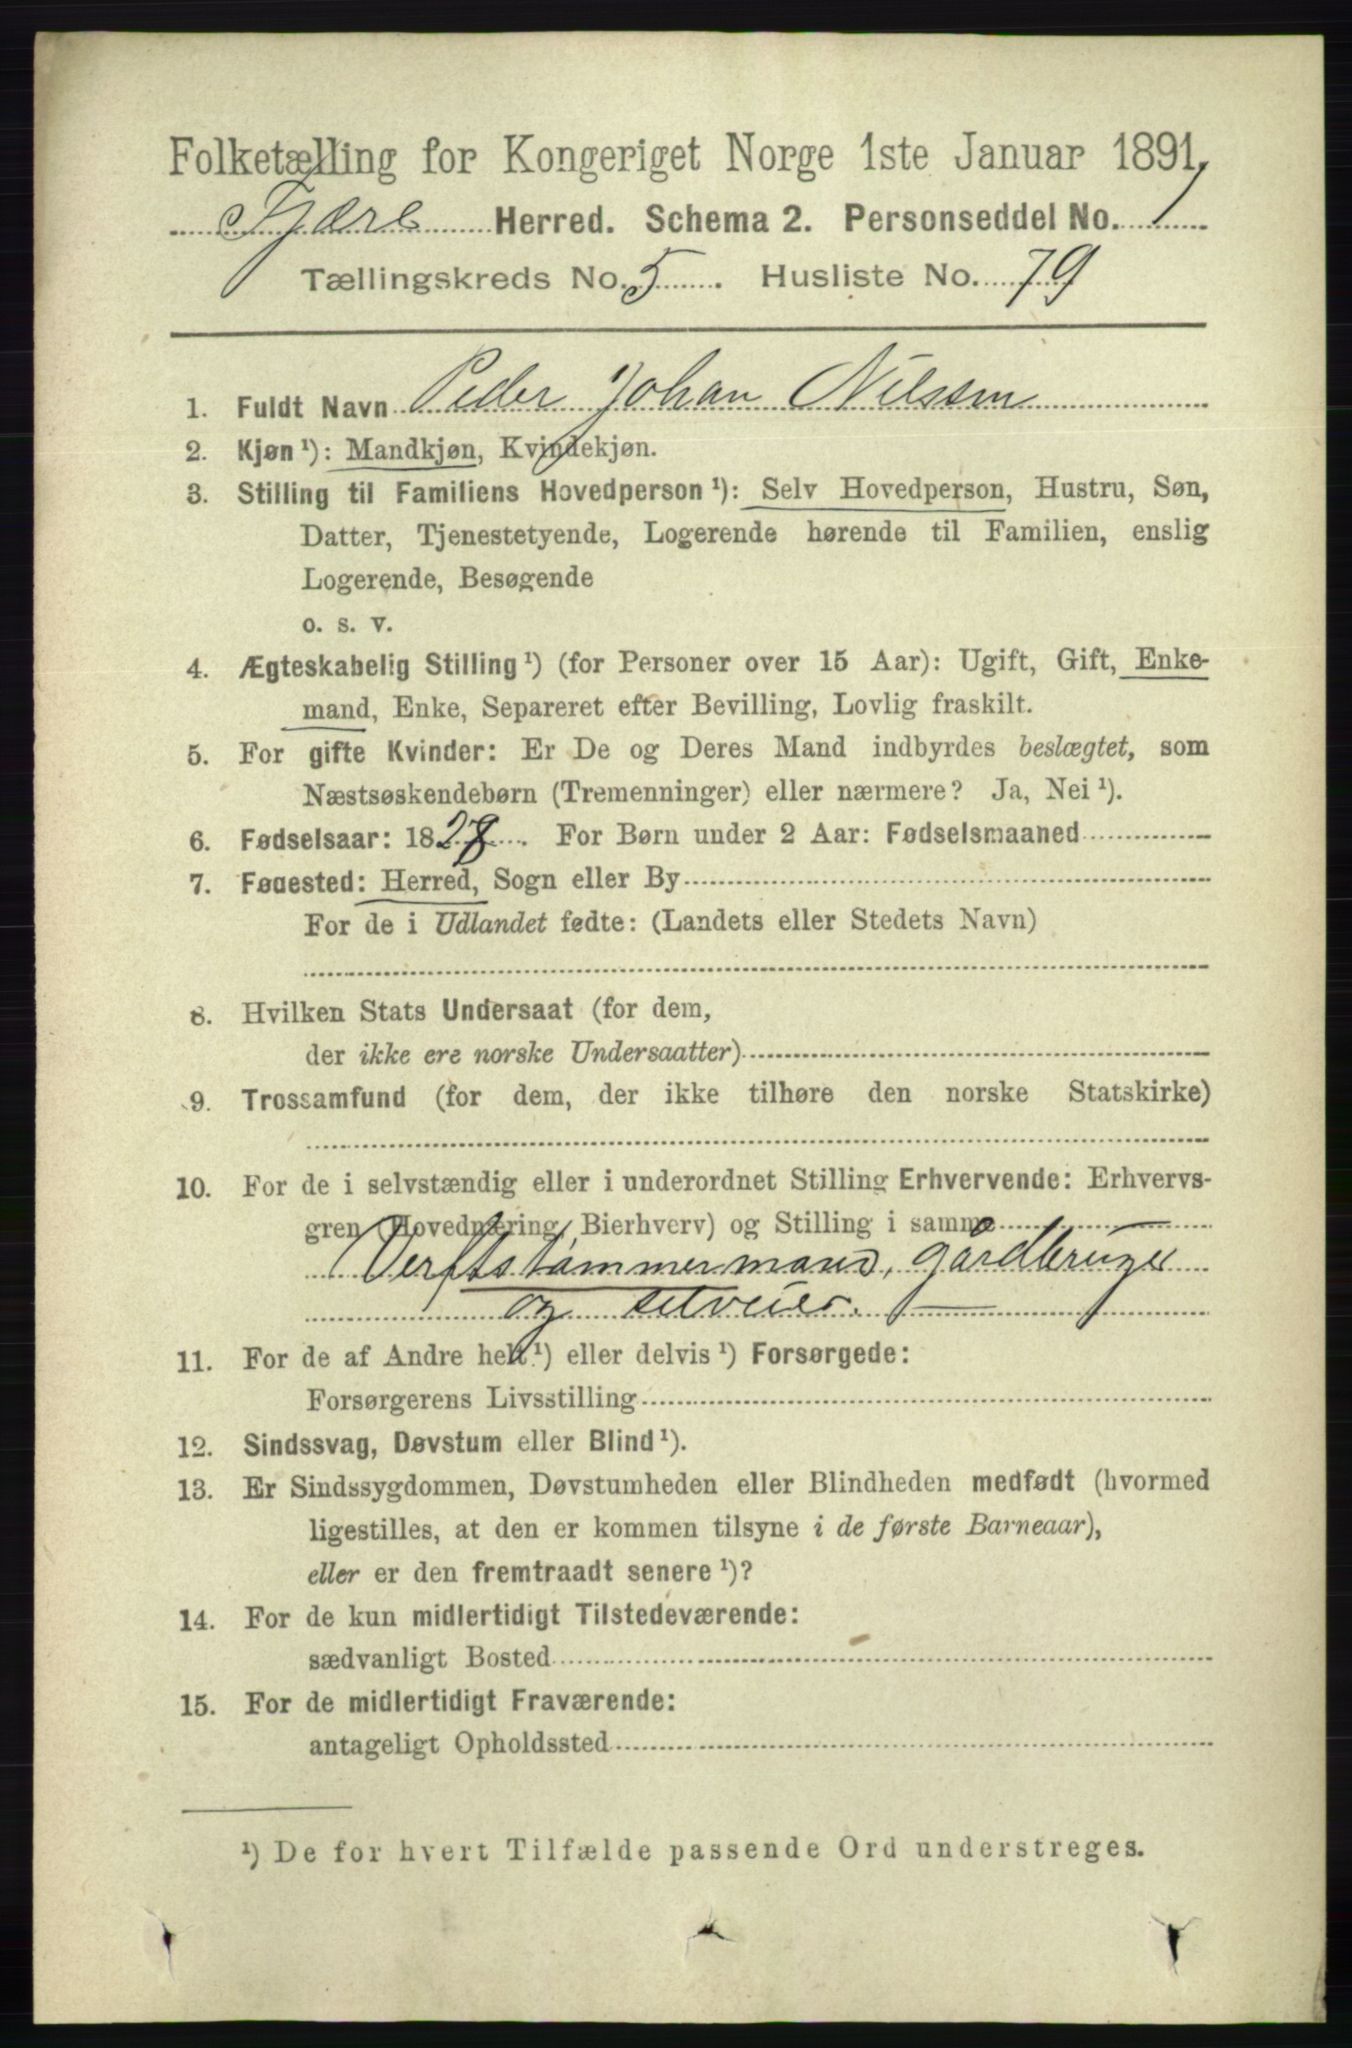 Folketælling for Kongeriget Norge 1ste Januar 1891.
Fjære Herred. Schema 2. Personseddel No. 1
Tællingskreds No. 5. Husliste No. 79
1. Fuldt Navn Peder Johan Nilssen
2. Kjøn ¹): Mandkjøn, Kvindekjøn.
3. Stilling til Familiens Hovedperson ¹): Selv Hovedperson, Hustru, Søn,
Datter, Tjenestetyende, Logerende hørende til Familien, enslig
Logerende, Besøgende
o. s. v.
4. Ægteskabelig Stilling ¹) (for Personer over 15 Aar): Ugift, Gift, Enke-
mand, Enke, Separeret efter Bevilling, Lovlig fraskilt.
5. For gifte Kvinder: Er De og Deres Mand indbyrdes beslægtet, som
Næstsøskendebørn (Tremenninger) eller nærmere? Ja, Nei ¹).
6. Fødselsaar: 1828. For Børn under 2 Aar: Fødselsmaaned
7. Fødested: Herred, Sogn eller By
For de i Udlandet fødte: (Landets eller Stedets Navn)
8. Hvilken Stats Undersaat (for dem,
der ikke ere norske Undersaatter)
9. Trossamfund (for dem, der ikke tilhøre den norske Statskirke)
10. For de i selvstændig eller i underordnet Stilling Erhvervende: Erhvervs-
gren (Hovednæring, Bierhverv) og Stilling i samme
Verftstømmermand, gårdbruger
og selveier.
11. For de af Andre helt ¹) eller delvis ¹) Forsørgede:
Forsørgerens Livsstilling
12. Sindssvag, Døvstum eller Blind ¹).
13. Er Sindssygdommen, Døvstumheden eller Blindheden medfødt (hvormed
ligestilles, at den er kommen tilsyne i de første Barneaar),
eller er den fremtraadt senere ¹)?
14. For de kun midlertidigt Tilstedeværende:
sædvanligt Bosted
15. For de midlertidigt Fraværende:
antageligt Opholdssted
¹) De for hvert Tilfælde passende Ord understreges.